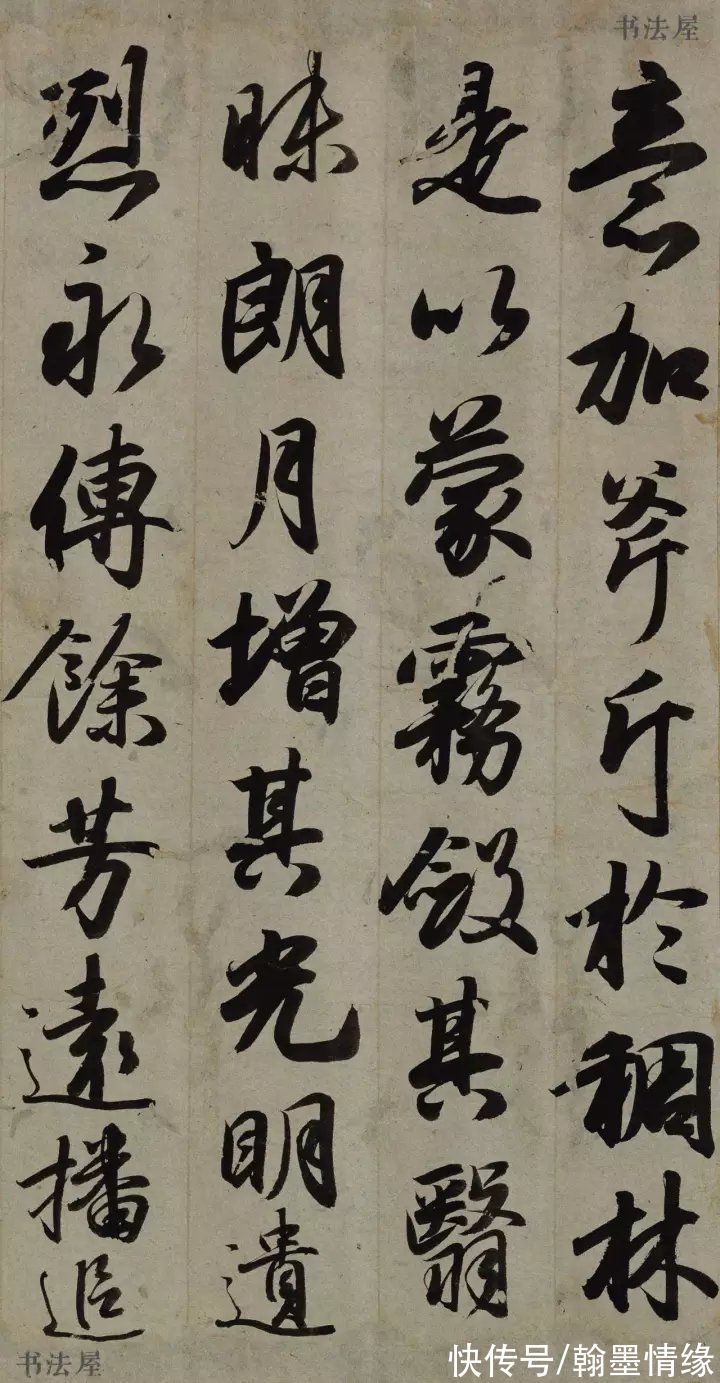 书法屋
意加斧斤於稠林
是以蒙霧斂其翳
昧朗月增其光明遺
烈永傳餘芳遠播追
书法屋
快传号/翰墨情缘